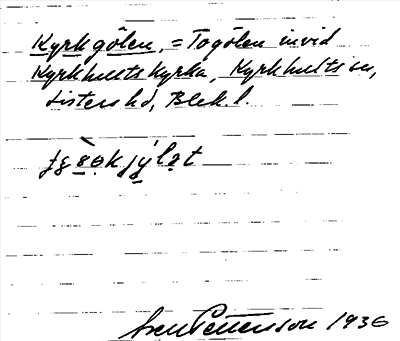 Kyrkgölen, = Togölen invid
Kyrkhults kyrka, Kyrkhults sn,
Listers hd, Blek. l.
Sven Pettersson 1936